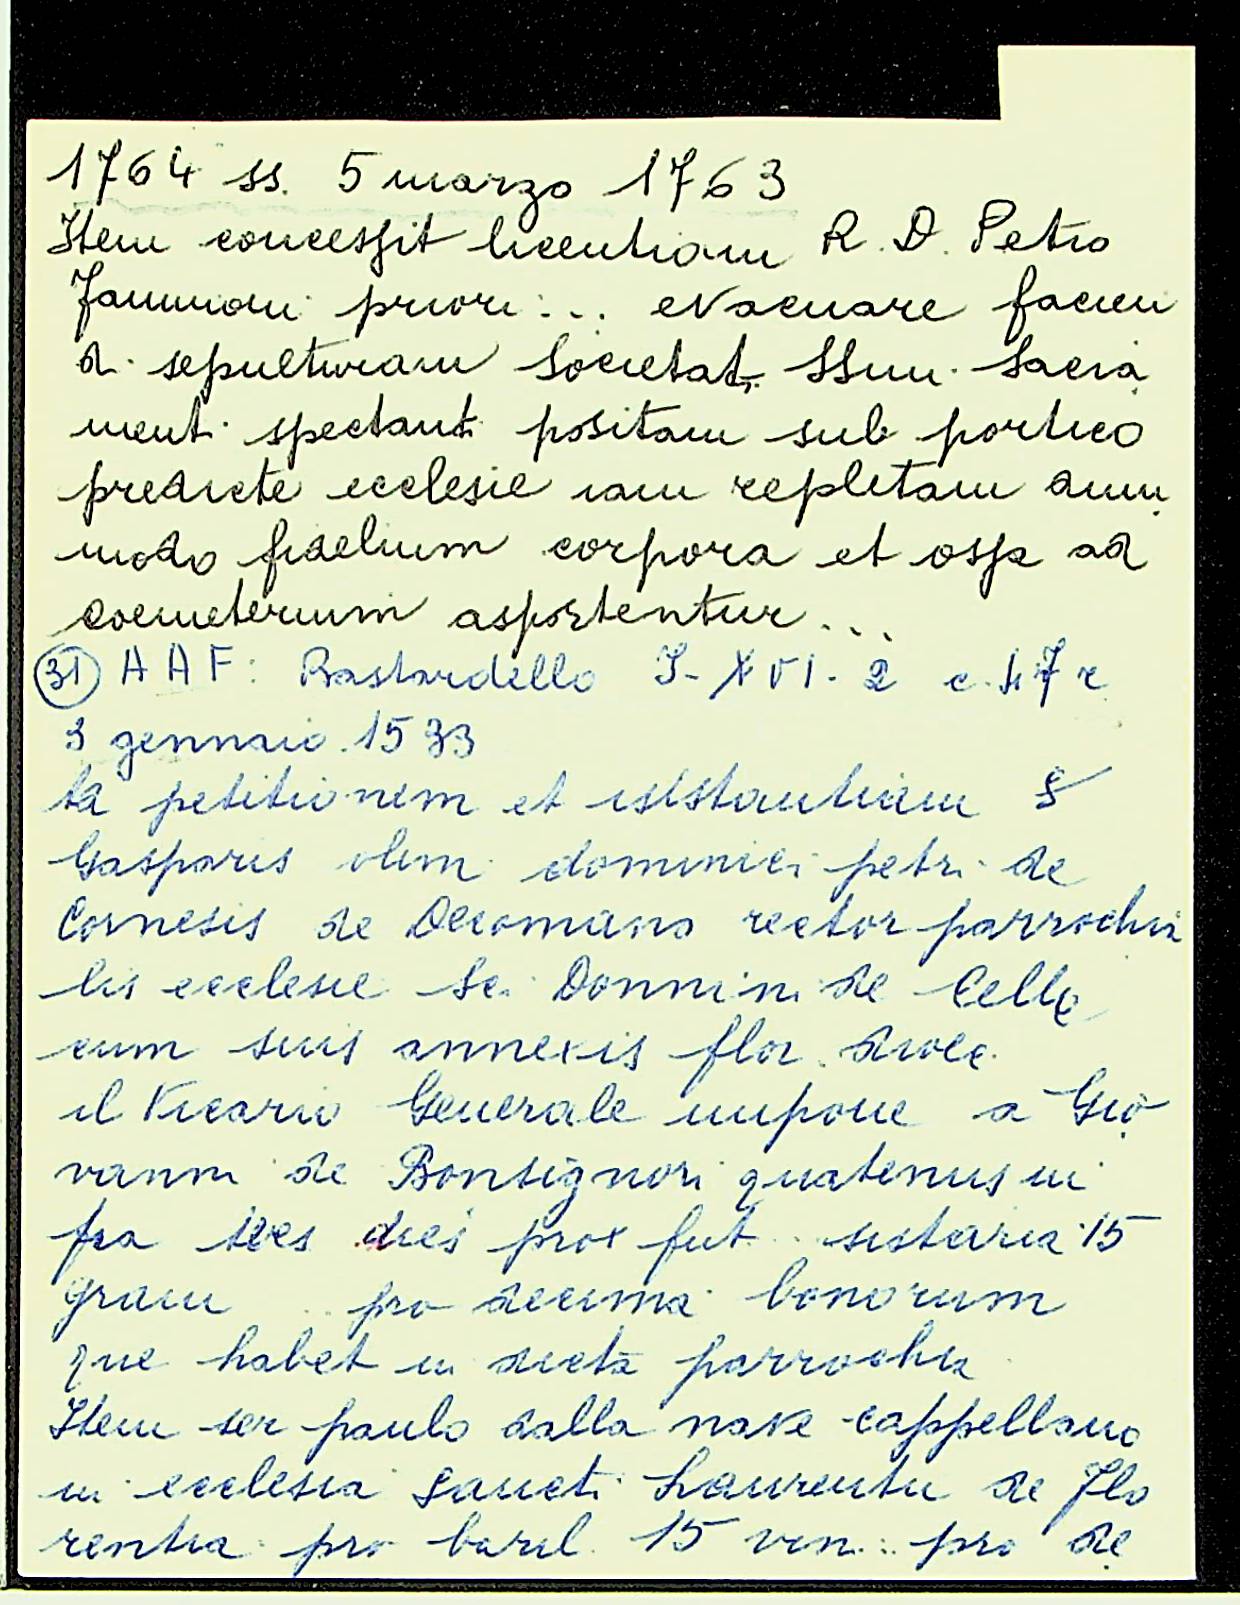 1764 ss. 5 marzo 1763
Item concessit licentiam R. D. Petro
priori ... evacuare facien
d. sepulturam Societat. SSmi. Sacra
ment. spectant. positam sub portico
predicte ecclesie iam repletam dum
modo fidelium corpora et ossa ad
coemeterium asportentur...
(31) AAF: Bastardello I-XVI. 2 c. 47 r
3 gennaio 1533
petitionem et
Gasparis olim dominici petri de
Cornesis de Decomano rector parrochia
lis ecclesie Sci Donnini de Celle
cum suis annexis flor. dioce.
il Vicario Generale impone a Gio
vanni de Bonsignori quatenus in
fra tres dies prox fut. .. 15
gran .. pro decima bonorum
que habet in dicta parrochia
Item ser paulo dalla nave cappellano
in ecclesia Sancti Laurentii de Flo
rentia pro baril. 15 vin.. pro de